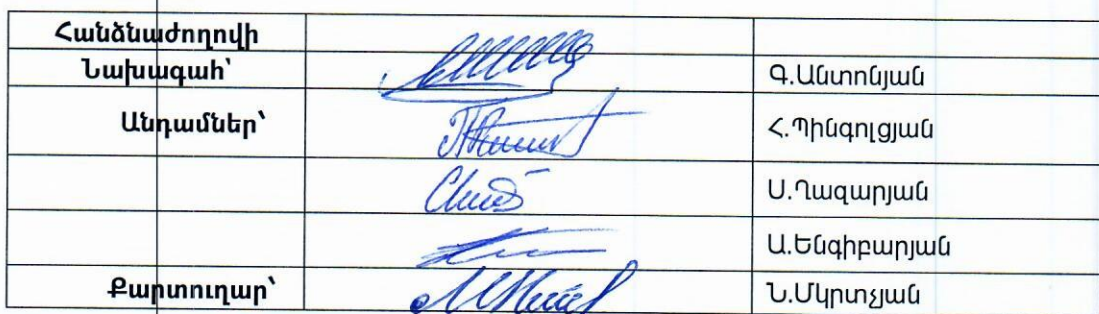 Հանձնաժողովի
Նախագահ՝ Գ.Անտոնյան
Անդամներ՝ Հ.Պինգոլցյան
Ս.Ղազարյան
Ա.Ենգիբարյան
Քարտուղար՝ Ն.Մկրտչյան